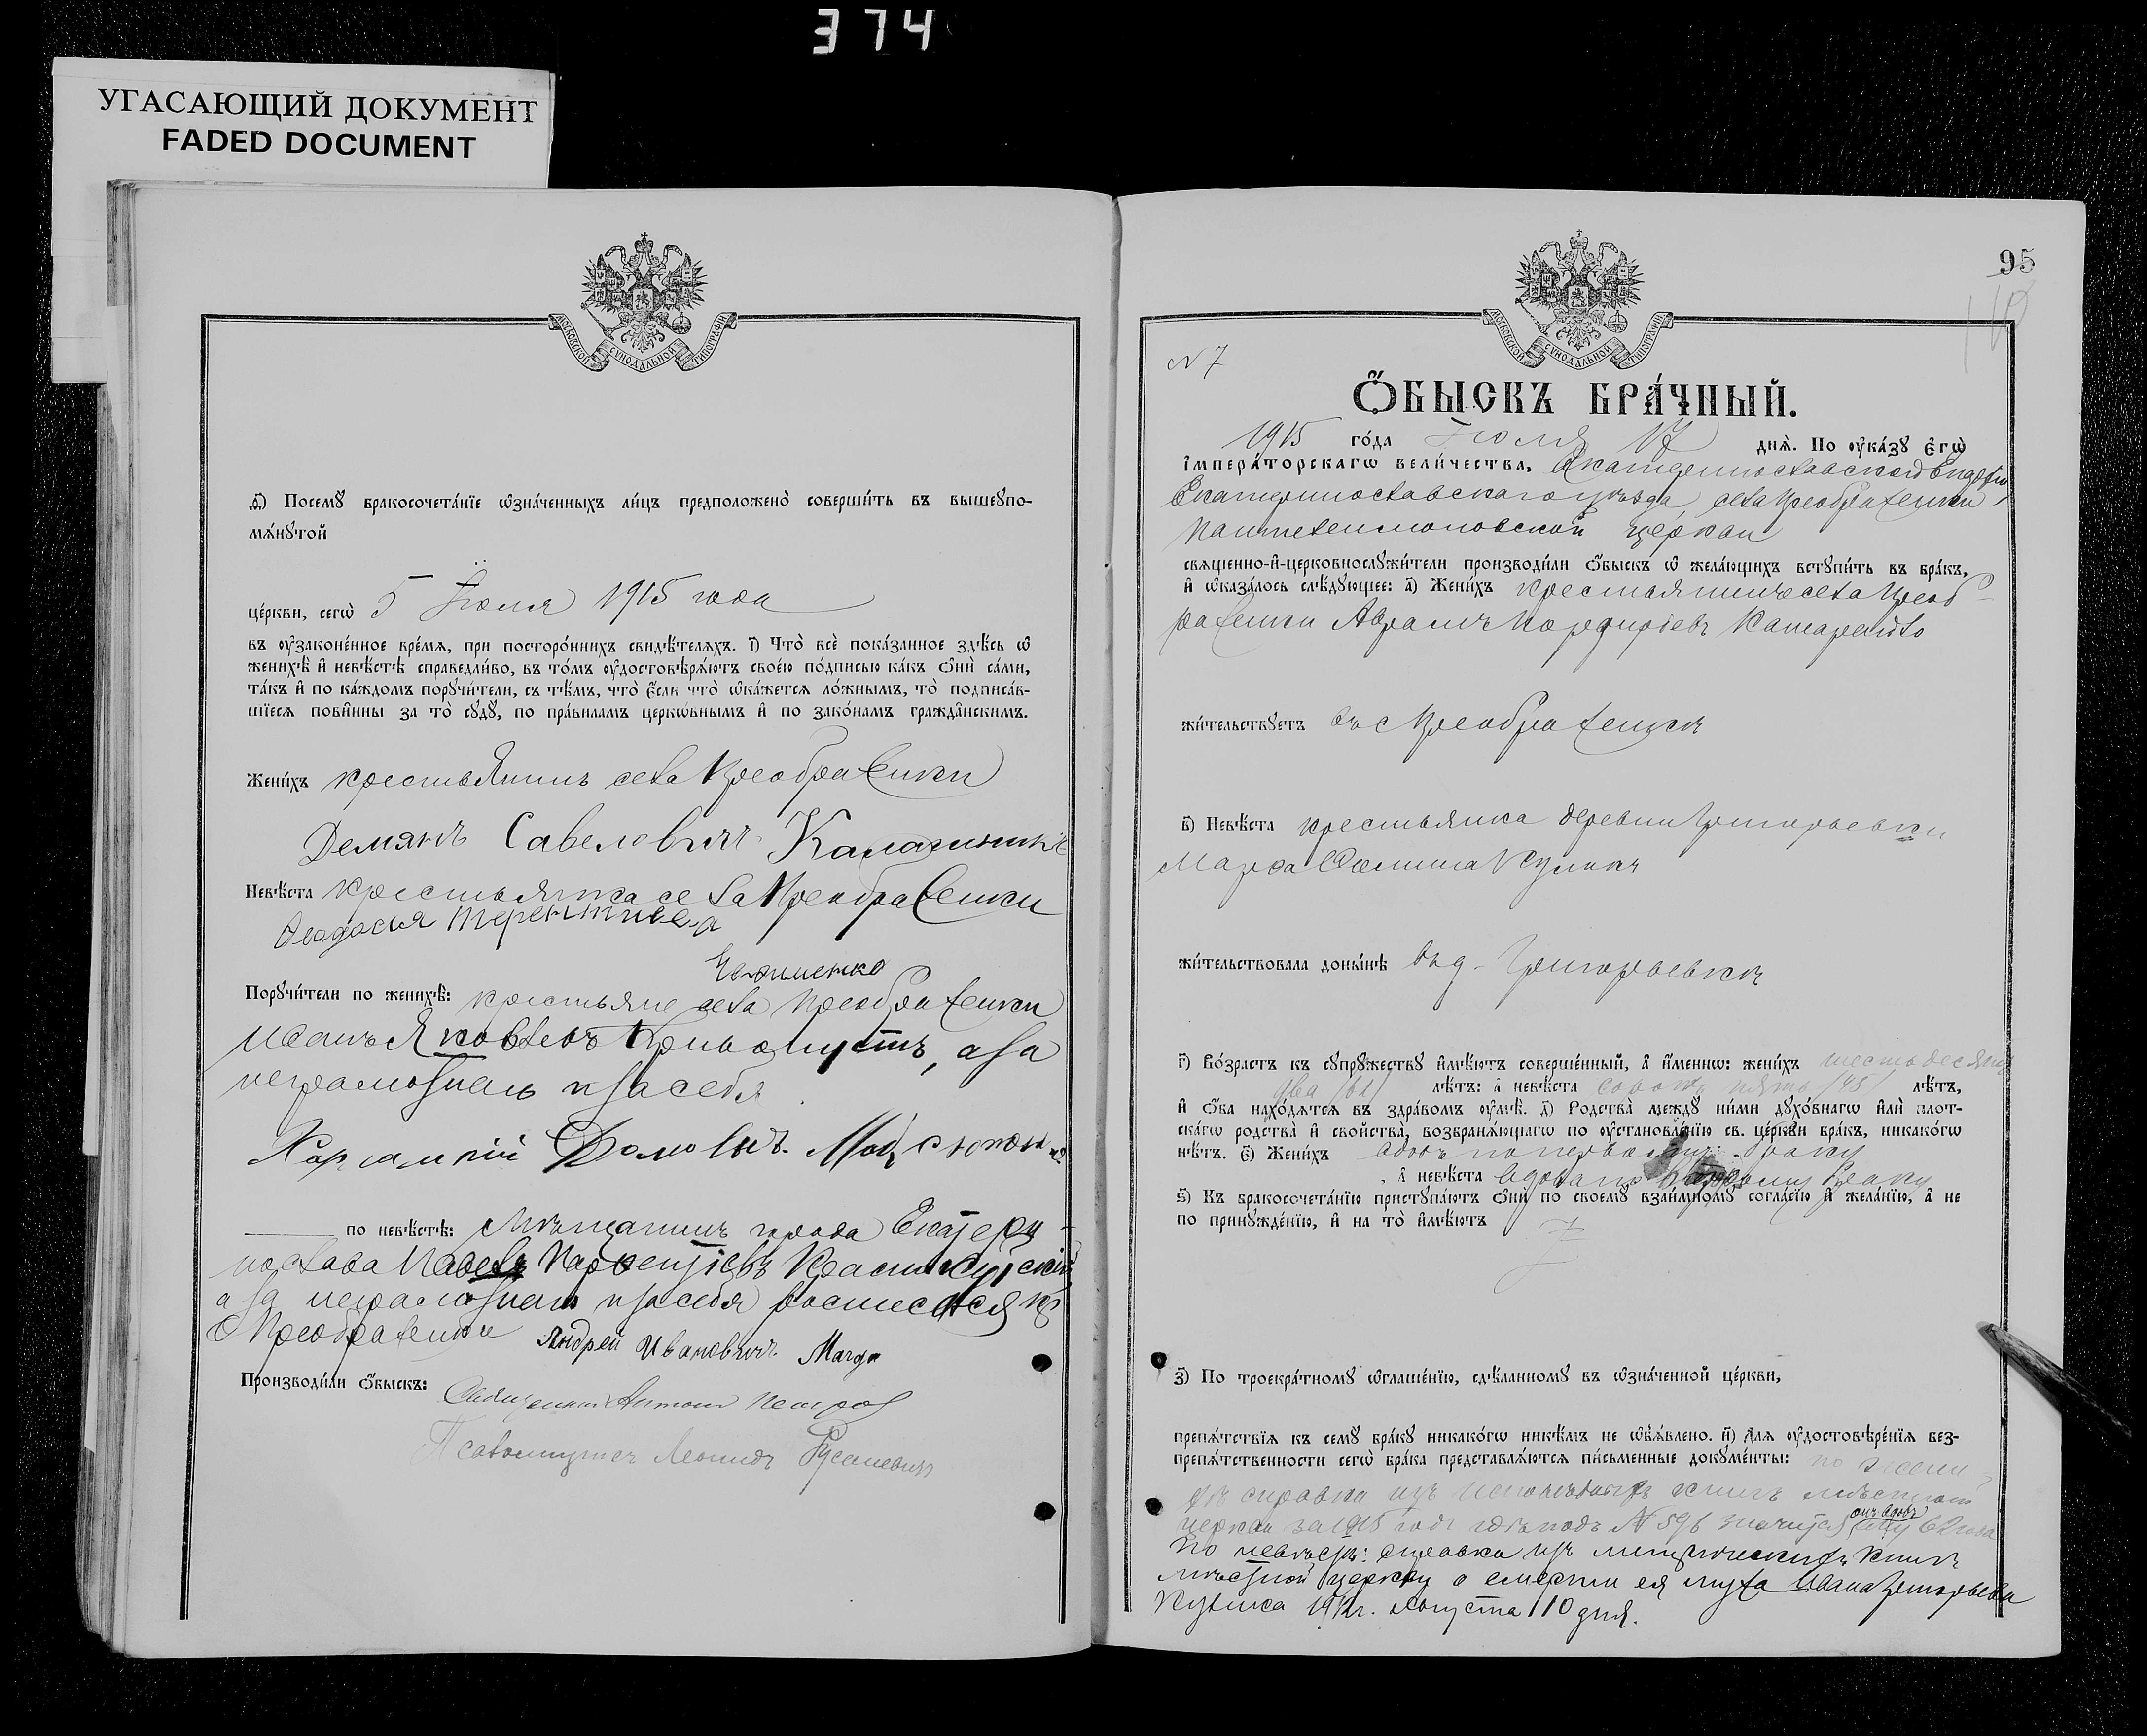 374
УГАСАЮЩИЙ ДОКУМЕНТ
FADED DOCUMENT
МОСКОВСКОЙ СѴНОДАЛЬНОЙ ТИПОГРАФИИ
д҃і) Посемꙋ бракосочета́нїе ѡ҆зна́ченныхъ ли́цъ предположено̀ соверши́ть въ вышеꙋпо-
мѧ́нꙋтой
це́ркви, сегѡ̀ 5 Іюля 1915 года
въ ᲂу҆законе́нное вре́мѧ, при посторо́ннихъ свидѣ́телѧхъ. г҃і) Что̀ всѐ пока́занное здѣ́сь ѡ҆
женихѣ̀ и҆ невѣ́стѣ справедли́во, въ то́мъ ᲂу҆достовѣрѧ́ютъ свое́ю по́дписью ка́къ ѻ҆нѝ са́ми,
та́къ и҆ по ка́ждомъ порꙋчи́тели, съ тѣ́мъ, что̀ є҆́сли что̀ ѡ҆ка́жетсѧ ло́жнымъ, то̀ подписа́в-
шїесѧ пови́нны за то̀ сꙋдꙋ̀, по пра́виламъ церко́внымъ и҆ по зако́намъ гражда́нскимъ.
Жени́хъ крестьянинъ села Преображенки
Демянъ Савеловичъ
Невѣ́ста крестьянка села Преображенки
Ѳеодосия Терентиева
Порꙋчи́тели по женихѣ̀: крестьяне села Преображенки
Иванъ Яковлевъ Кривопустъ, а за
неграмотнаго и за себя
по невѣ́стѣ: Мѣщанинъ города Екатери-
нослава Павелъ Парѳентіевъ
а за неграмотнаго и за себя росписался кр.
с Преображенки Андрей Ивановичъ
Производи́ли ѻ҆́быскъ: Священникъ Антоній Петров
Псаломщикъ Леонидъ
95
МОСКОВСКОЙ СѴНОДАЛЬНОЙ ТИПОГРАФИИ
N 7
Ѻ҆́БЫСКЪ БРА́ЧНЫЙ.
1915 го́да Іюля 17 днѧ̀. По ᲂу҆ка́зꙋ є҆гѡ̀
і҆мпера́торскагѡ вели́чества, Екатеринославской Епархіи
Екатеринославскаго уѣзда, села Преображенки,
Пантелеимоновской церкви
свѧще́нно-и҆-церковнослꙋжи́тели производи́ли ѻ҆́быскъ ѡ҆ жела́ющихъ встꙋпи́ть въ бра́къ,
и҆ ѡ҆каза́лось слѣ́дꙋющее: а҃) Жени́хъ крестьянинъ села Преоб-
раженки Аврамъ Порфиріевъ
жи́тельствꙋетъ въ с Преображенкѣ
в҃) Невѣ́ста крестьянка деревни Григорьевки
Марѳа
жи́тельствовала доны́нѣ въ д. Григорьевкѣ
г҃) Во́зрастъ къ сꙋпрꙋ́жествꙋ и҆мѣ́ютъ соверше́нный, а҆ и҆́меннѡ: жени́хъ шестьдесятъ
два /62/ лѣ́тъ: а҆ невѣ́ста сорокъ пять /45/ лѣ́тъ,
и҆ ѻ҆́ба нахо́дѧтсѧ въ здра́вомъ ᲂу҆мѣ̀. д҃) Родства̀ междꙋ̀ ни́ми дꙋхо́внагѡ и҆лѝ плот-
ска́гѡ родства̀ и҆ свойства̀, возбранѧ́ющагѡ по ᲂу҆становле́нїю св. це́ркви бра́къ, никако́гѡ
нѣ́тъ. є҃) Жени́хъ вдовъ по первому браку
, а҆ невѣ́ста вдова по второму браку
ѕ҃) Къ бракосочета́нїю пристꙋпа́ютъ ѻ҆нѝ по своемꙋ̀ взаи́мномꙋ согла́сїю и҆ жела́нїю, а҆ не
по принꙋжде́нїю, и҆ на то̀ и҆мѣ́ютъ
з҃) По троекра́тномꙋ ѡ҆глаше́нїю, сдѣ́ланномꙋ въ ѡ҆зна́ченной це́ркви,
препѧ́тствїѧ къ семꙋ̀ бра́кꙋ никако́гѡ никѣ́мъ не ѡ҆б̾ѧ́влено. и҃) Длѧ ᲂу҆достовѣре́нїѧ без-
препѧ́тственности сегѡ̀ бра́ка представлѧ́ютсѧ пи́сьменные докꙋме́нты: по жени-
хѣ справка изъ исповѣдныхъ книгъ мѣстной
церкви за 1915 годъ гдѣ подъ N 596 значится онъ вдовъ ему 62 года
По невѣстѣ: справка изъ метрическихъ книгъ
мѣстной церкви о смерти ея мужа Ивана Григорьева
Кулика 1912 г. Августа 10 дня.